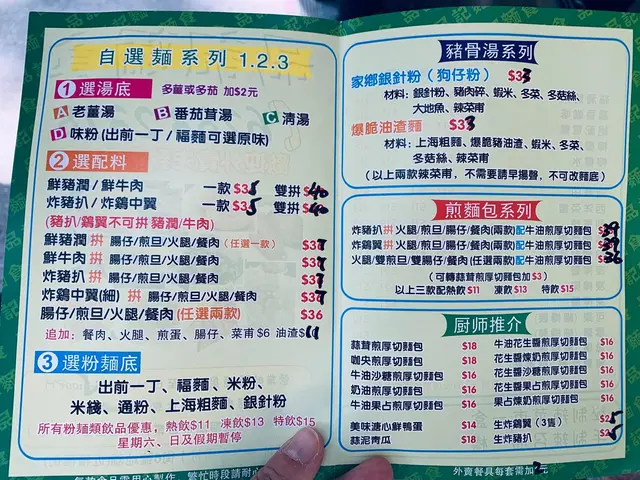 自選麵系列 1.2.3
1 選湯底 多薑或多茄 加$2元
A 老薑湯 B 番茄茸湯 C 清湯
D 味粉(出前一丁/福麵可選原味)
2 選配料
鮮豬潤/鮮牛肉 一款$35 雙拼$40
炸豬扒/炸鷄中翼 一款$35 雙拼$40
(豬扒/鷄翼不可拼豬潤/牛肉)
鮮豬潤拼 腸仔/煎旦/火腿/餐肉 (任選一款) $37
鮮牛肉拼 腸仔/煎旦/火腿/餐肉 $37
炸豬扒拼 腸仔/煎旦/火腿/餐肉 $37
炸鷄中翼(細)拼 腸仔/煎旦/火腿/餐肉 $37
腸仔/煎旦/火腿/餐肉(任選兩款) $36
追加：餐肉、火腿、煎蛋、腸仔、菜甫$6 油渣
3 選粉麵底
出前一丁、福麵、米粉、
米綫、通粉、上海粗麵、銀針粉
所有粉麵類飲品優惠，熱飲$11 凍飲$13 特飲$15
星期六、日及假期暫停
豬骨湯系列
家鄉銀針粉（狗仔粉） $33
材料：銀針粉、豬肉碎、蝦米、冬菜、冬菇絲、
大地魚、辣菜甫
爆脆油渣麵 $33
材料：上海粗麵、爆脆豬油渣、蝦米、冬菜、
冬菇絲、辣菜甫
(以上兩款辣菜甫，不需要請早揚聲，不可改麵底)
煎麵包系列
炸豬扒拼火腿/煎旦/腸仔/餐肉(兩款)配牛油煎厚切麵包 $39
炸鷄翼拼火腿/煎旦/腸仔/餐肉(兩款)配牛油煎厚切麵包 $39
火腿/雙煎旦/雙腸仔/餐肉(任選兩款)配牛油煎厚切麵包 $36
(可轉蒜茸煎厚切麵包加$3)
以上三款配熱飲$11 凍飲$13 特飲$15
厨师推介
蒜茸煎厚切麵包 $18 牛油花生醬煎厚切麵包 $16
咖央煎厚切麵包 $18 花生醬煉奶煎厚切麵包 $16
牛油沙糖煎厚切麵包 $14 花生醬沙糖煎厚切麵包 $16
奶油煎厚切麵包 $16 花生醬果占煎厚切麵包 $16
牛油果占煎厚切麵包 $16 果占煉奶煎厚切麵包 $16
美味溏心鮮鴨蛋 $14 生炸鷄翼(3隻) $25
蒜泥青瓜 $18 生炸豬扒 $25
繁忙時段請耐心
外賣餐具每套需加1元